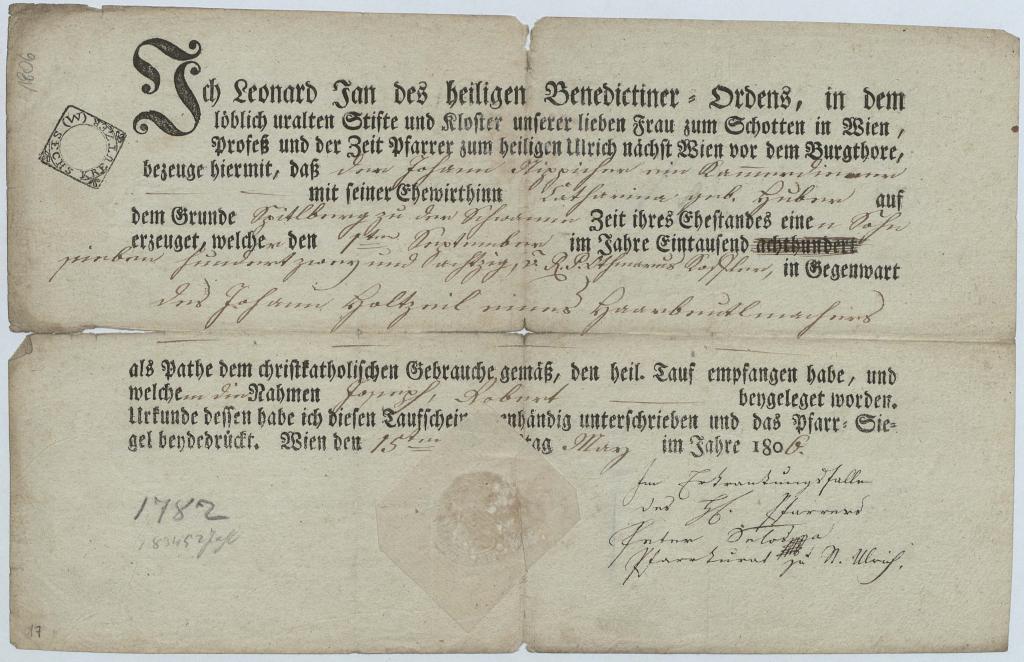 1806
SECHS (W) KREUTZER
Ich Leonard Jan des heiligen Benedictiner-Ordens, in dem
löblich uralten Stifte und Kloster unserer lieben Frau zum Schotten in Wien,
Profeß und der Zeit Pfarrer zum heiligen Ulrich nächst Wien vor dem Burgthore,
bezeuge hiermit, daß der Johann ein Kammerdiener
mit seiner Ehewirthinn Catharina geb. Huber auf
dem Grunde Spitlberg zu der Schwanne Zeit ihres Ehestandes einen Sohn
erzeuget, welcher den 1ten September im Jahre Eintausend achthundert
sieben hundert zwey und Sachtzig, v. R. P. Othmarus, in Gegenwart
des Johann Holtzeil eines Haarbeutlmachers
als Pathe dem christkatholischen Gebrauche gemäß, den heil. Tauf empfangen habe, und
welchem die Nahmen Joseph, Robert beygeleget worden.
Urkunde dessen habe ich diesen Taufschein enhändig unterschrieben und das Pfarr-Sie-
gel beydedrückt. Wien den 15ten tag May im Jahre 1806.
Im Erkrankungsfalle
des H. Pfarrers
Peter
Pfarrkurat zu St. Ulrich.
1782
17